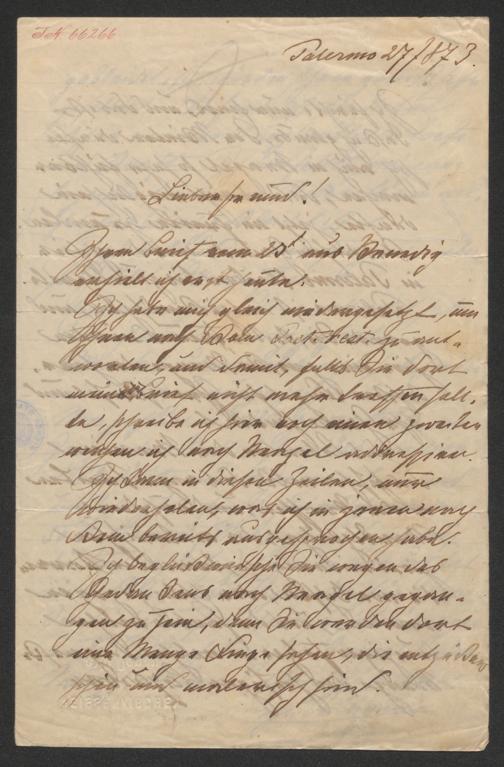 IN 66266
Palermo 27/8 73.
Lieber Freund!
Ihren Brief vom 23t aus Venedig
erhielt ich erst heute.
Ich habe mich gleich niedergesetzt, um
Ihnen nach Rom Post. rest. zu ant-
worten, und damit, falls Sie dort
meinen Brief nicht mehr treffen soll-
te, schreibe ich hier noch einen zweiten
welchen ich nach Neapel adressire.
Ich kann in diesen Zeilen, nur
wiederholen, was ich in jenen nach
Rom bereits ausgesprochen habe.
Ich beglückwünsche Sie wegen des
nach Neapel gegan-
gen zu sein, denn Sie werden dort
eine Menge Dinge sehen, die entzückend
schön und malerisch sind.